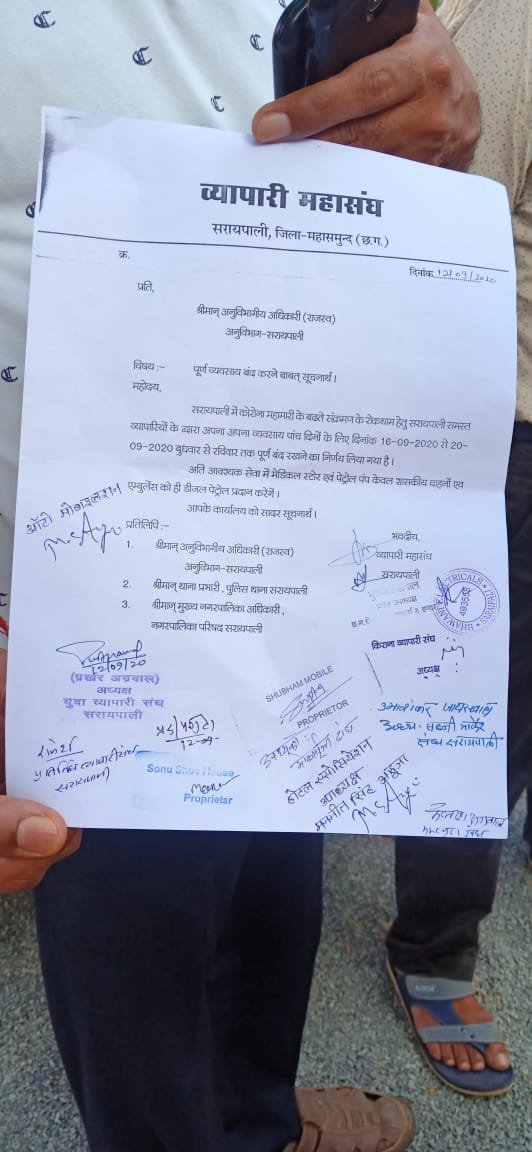 व्यापारी महासंघ
सरायपाली, जिला-महासमुन्द (छ.ग.)
क्र.
दिनांक 12/09/2020
प्रति,
श्रीमान् अनुविभागीय अधिकारी (राजस्व)
अनुविभाग-सरायपाली
विषय :- पूर्ण व्यवसाय बंद करने बाबत् सूचनार्थ ।
महोदय,
सरायपाली में कोरोना महामारी के बढते संक्रमण के रोकथाम हेतु सरायपाली समस्त
व्यापारियों के द्वारा अपना अपना व्यवसाय पांच दिनों के लिए दिनांक 16-09-2020 से 20-
09-2020 बुधवार से रविवार तक पूर्ण बंद रखने का निर्णय लिया गया है ।
अति आवश्यक सेवा में मेडिकल स्टोर एवं पेट्रोल पंप केवल शासकीय वाहनों एवं
एम्बुलेंस को ही डीजल पेट्रोल प्रदान करेगें ।
आपके कार्यालय को सादर सूचनार्थ ।
ऑटो मोबाइलशन
प्रतिलिपि :-
1. श्रीमान् अनुविभागीय अधिकारी (राजस्व)
अनुविभाग-सरायपाली
2. श्रीमान् थाना प्रभारी, पुलिस थाना सरायपाली
3. श्रीमान् मुख्य नगरपालिका अधिकारी,
नगरपालिका परिषद सरायपाली
भवदीय,
व्यापारी महासंघ
सरायपाली
BHAWANI ELECTRICALS
493558
किराना व्यापारी संघ
अध्यक्ष
12/09/20
(प्रखर अग्रवाल)
अध्यक्ष
युवा व्यापारी संघ
सरायपाली
SHUBHAM MOBILE
PROPRIETOR
Sonu Shoe House
Proprietar
होटल एसोसियेशन
अध्यक्ष
सरायपाली